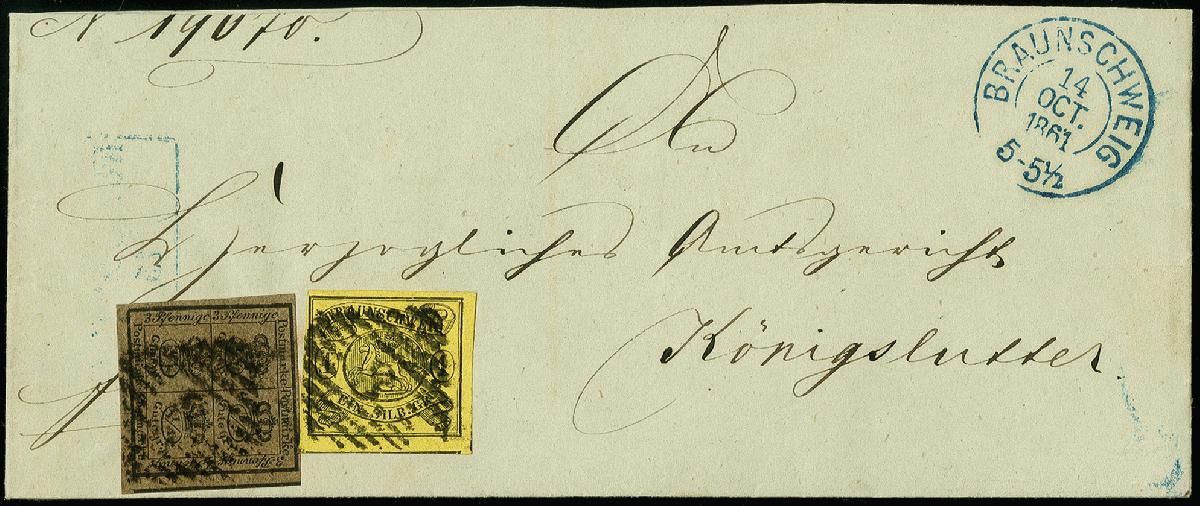 N 19070.
BRAUNSCHWEIG
14
OCT.
1861
5-5½
An
Herzogliches Amtsgericht
Königslutter
3 Pfennige 3 Pfennige
Postmarke Postmarke
BRAUNSCHWEIG
EIN SILB. GR.